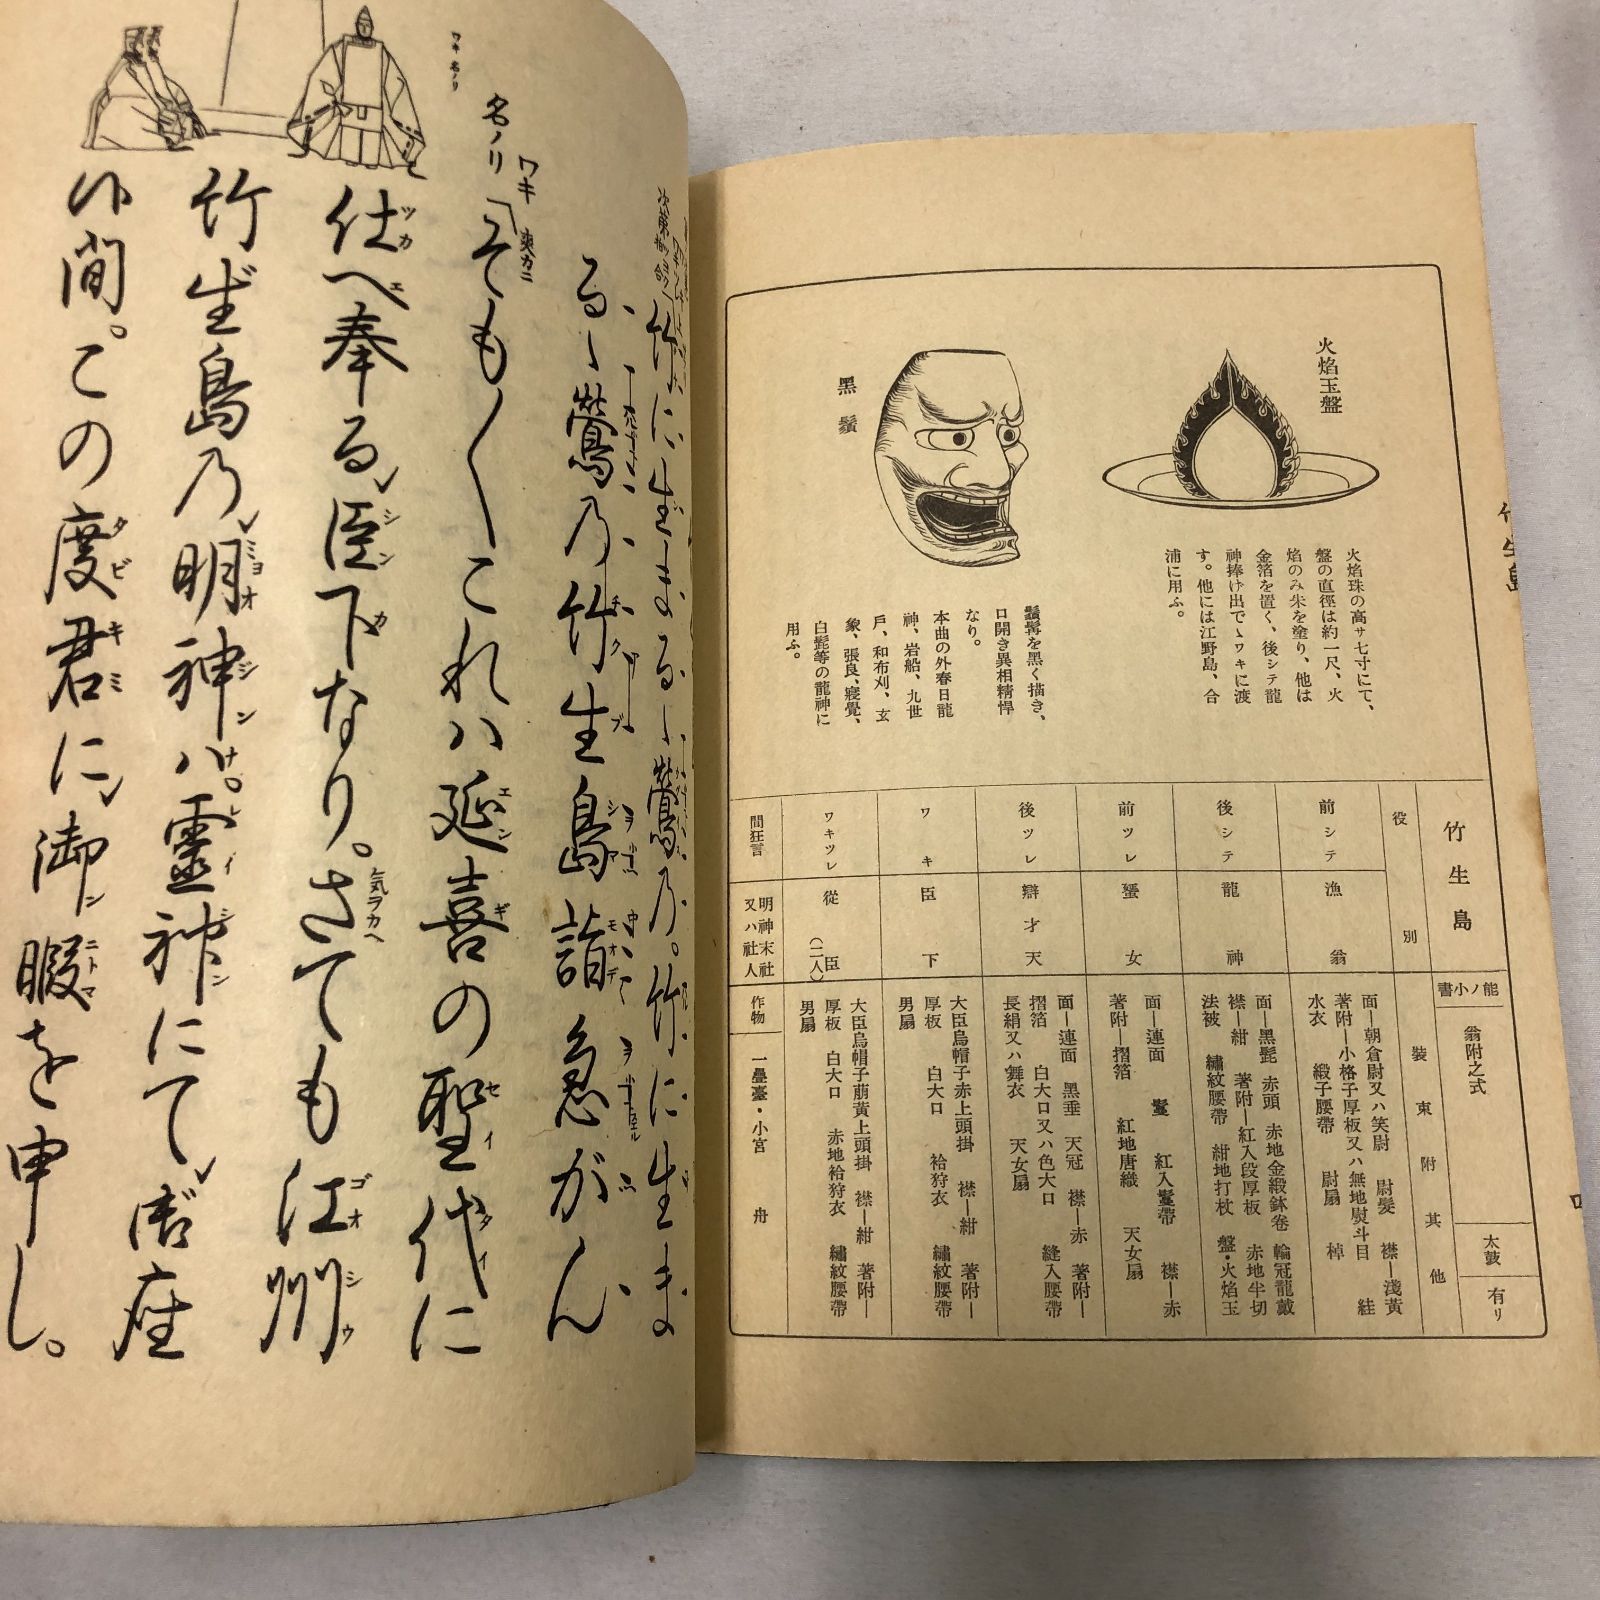 竹生島
火焰玉盤
火焰珠の高サ七寸にて、
盤の直徑は約一尺、火
焰のみ朱を塗り、他は
金箔を置く、後シテ龍
神捧け出でゝワキに渡
す。他には江野島、合
浦に用ふ。
黑鬚
鬚髯を黑く描き、
口開き異相精悍
なり。
本曲の外春日龍
神、岩船、九世
戶、和布刈、玄
象、張良、寢覺、
白髭等の龍神に
用ふ。
竹生島
能ノ小書
翁附之式
太鼓
有リ
役別
裝束附其他
前シテ
漁翁
面―朝倉尉又ハ笑尉 尉髮 襟―淺黃
著附―小格子厚板又ハ無地熨斗目 絓
水衣 緞子腰帶 尉扇 棹
後シテ
龍神
面―黑髭 赤頭 赤地金緞鉢卷 輪冠龍戴
襟―紺 著附―紅入段厚板 赤地半切
法被 繡紋腰帶 紺地打杖 盤・火焰玉
前ツレ
蜑女
面―連面 鬘 紅入鬘帶 襟―赤
著附―摺箔 紅地唐織 天女扇
後ツレ
辯才天
面―連面 黑垂 天冠 襟―赤 著附―
摺箔 白大口又ハ色大口 縫入腰帶
長絹又ハ舞衣 天女扇
ワキ
臣下
大臣烏帽子赤上頭掛 襟―紺 著附―
厚板 白大口 袷狩衣 繡紋腰帶
男扇
ワキツレ
從臣
(二人)
大臣烏帽子萠黃上頭掛 襟―紺 著附―
厚板 白大口 赤地袷狩衣 繡紋腰帶
男扇
間狂言
明神末社
又ハ社人
作物
一疊臺・小宮 舟
竹に生まるゝ鶯乃。竹に生ま
るゝ鶯乃竹生島詣急がん
名ノリ
ワキ
爽カニ
「そも〱これハ延喜の聖代に
仕へ奉る臣下なり。さても江州
気ヲカヘ
竹生島乃明神ハ。靈神にて御座
候間。この度君に御暇を申し。
ワキ名ノリ